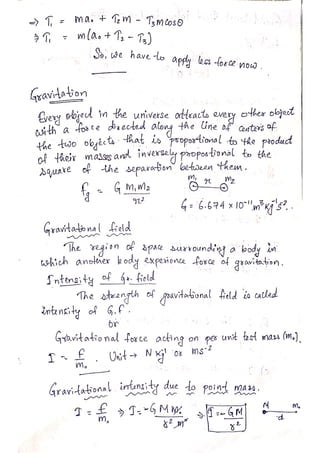 ⇒ T₁ = ma₀ + T₂m - T₃mcosθ
⇒ T₁ = m(a₀ + T₂ - T₃)
So, we have to apply less force now.
Gravitation
Every object in the universe attracts every other object
with a force directed along the line of centers of
the two objects that is proportional to the product
of their masses and inversely proportional to the
square of the separation between them.
m₁ r m₂
fg = G m₁m₂ / r²
G = 6.674 x 10⁻¹¹ m³ kg⁻¹ s⁻².
Gravitational field
The region of space surrounding a body in
which another body experience force of gravitation.
Intensity of G. field
The strength of gravitational field is called
intensity of G.f.
or
Gravitational force acting on per unit test mass (m₀).
I = f / m₀ . Unit → N kg⁻¹ or ms⁻²
Gravitational intensity due to point mass.
I = f / m₀ ⇒ I = -G M m₀ / r² m₀ ⇒ I = - GM / r²
M m₀
d